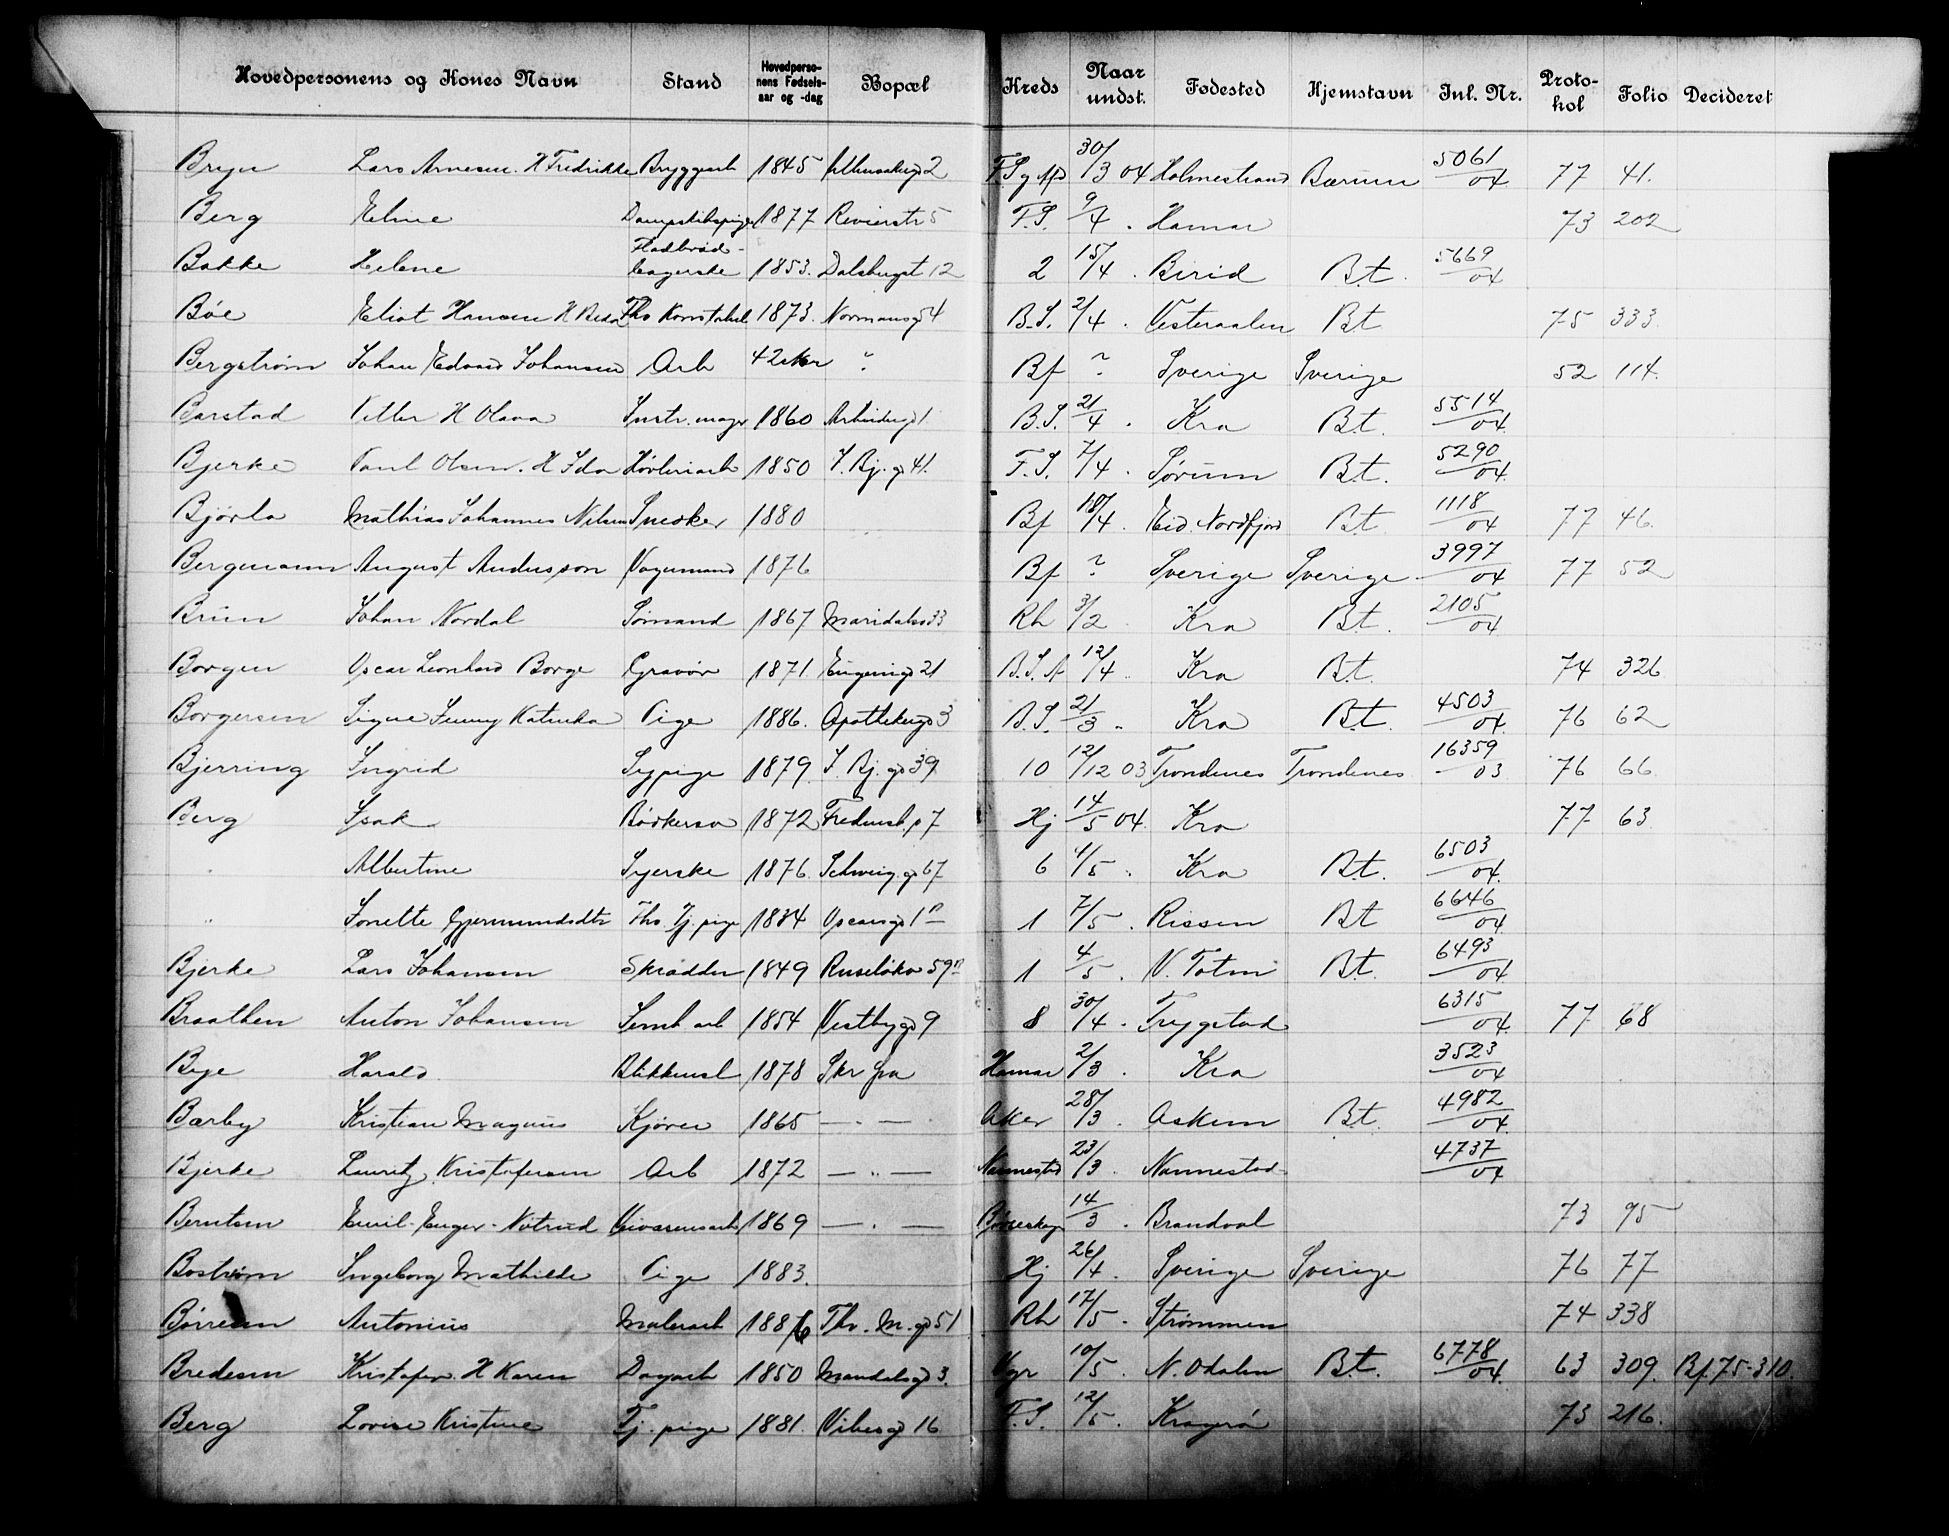 Hovedpersonens og Kones Navn Stand Hovedperso-nens Fødsels-aar og -dag Bopæl Kreds Naar undst. Fødested Hjemstavn Jnl. Nr. Proto-kol Folio Decideret
Bryn Lars Arnesen. H Fredrikke Bryggearb 1845 2 30/3 04 Holmestrand Bærum 5061/04 77 41.
Berg Eline 1877 Revierstr 5 F.S. 9/4 . Hamar 73 202
Bakke Helene Fladbrød-bagerske 1853. Dalsbergst 12 2 15/4 . Birid Bt. 5669/04
Bøe Eliot Hansen H Fhv Konstabel 1873. Normansg 54 B.S. 2/4 . Vesteraalen Bt 75 333.
Bergström Johan Edvard Johansen Arb 42 aar " Bf ? Sverige Sverige 52 114.
Barstad H Olava Instr. mager 1860 Arbeiderg 1 B.S. 21/4 . Kra Bt. 5514/04
Bjerke Paul Olsen. H Ida Høvleriarb 1850 S. Bj. g 41. F.S. 7/4 . Sørum Bt. 5290/04
Bjørlo Mathias Johannes Nilsen Snedker 1880 Bf 18/4 . Eid. Nordfjord Bt 1118/04 77 46.
Bergmann August Andersson Vognmand 1876 Bf ? Sverige Sverige 3997/04 77 52
Bruun Johan Nordal Sømand 1867 Maridalsv 33 Rh 3/2 Kra Bt. 2105/04
Borgen Oscar Leonhard Borge Gravør 1871. Eugenig 21 B.S. A 12/4 .. Kra Bt. 74 326
Borgersen Signe Jenny Katinka Pige 1886. Apothekerg 3 B.S. 21/3 .. Kra Bt. 4503/04 76 62
Bjerring Ingrid Sypige 1879. S. Bj. g 39 10 12/12 03 Trondenes Trondenes. 16359/03 76 66
Berg Isak Bødkersv 1872 Fredensb. 7 Hj 14/5 04. Kra 77 63.
" Albertine Syerske 1876. Schweig. g 67 6 4/5 . Kra Bt. 6503/04.
" Jonette Gjermundsdtr Fhv. Tj. pige 1834 Oscarsg 1 1 7/5 . Rissen Bt 6646/04
Bjerke Lars Johansen Skrædder 1849 Ruseløkv 59 1 4/5 . V. Toten Bt. 6493/04
Braathen Anton Johansen arb 1854 Vestbyg 9 8 30/4 . Trygstad 6315/04 77 68
Bye Harald Blikkensl 1878 Skr fra Hamar 2/3 . Kra 3523/04
Bærby Kristian Magnus Kjører 1865 — " — Aker 28/3 . Askim Bt. 4982/04.
Bjerke Lauritz Kristofersen Arb 1872 — " — Nannestad 23/3 . Nannestad 4737/04
Berntsen Emil 1869 — " — 14/3 . Brandval 73 95
Bostrøm Ingeborg Mathilde Pige 1883. Hj 26/4 . Sverige Sverige 76 77
Børresen Antonius Malerarb 1886 Thv. M. g 51 Rh 17/5 . Strømmen 74 338
Bredesen Kristofer. H Karen Dagarb 1850 Mandalsg 3. Vgr 10/5 . N. Odalen Bt. 6778/04. 63 309. Bf. 75-310.
Berg Lovise Kristine Tj. pige 1881. Vibesg 16 F.S. 12/5 . Kragerø 73 216.